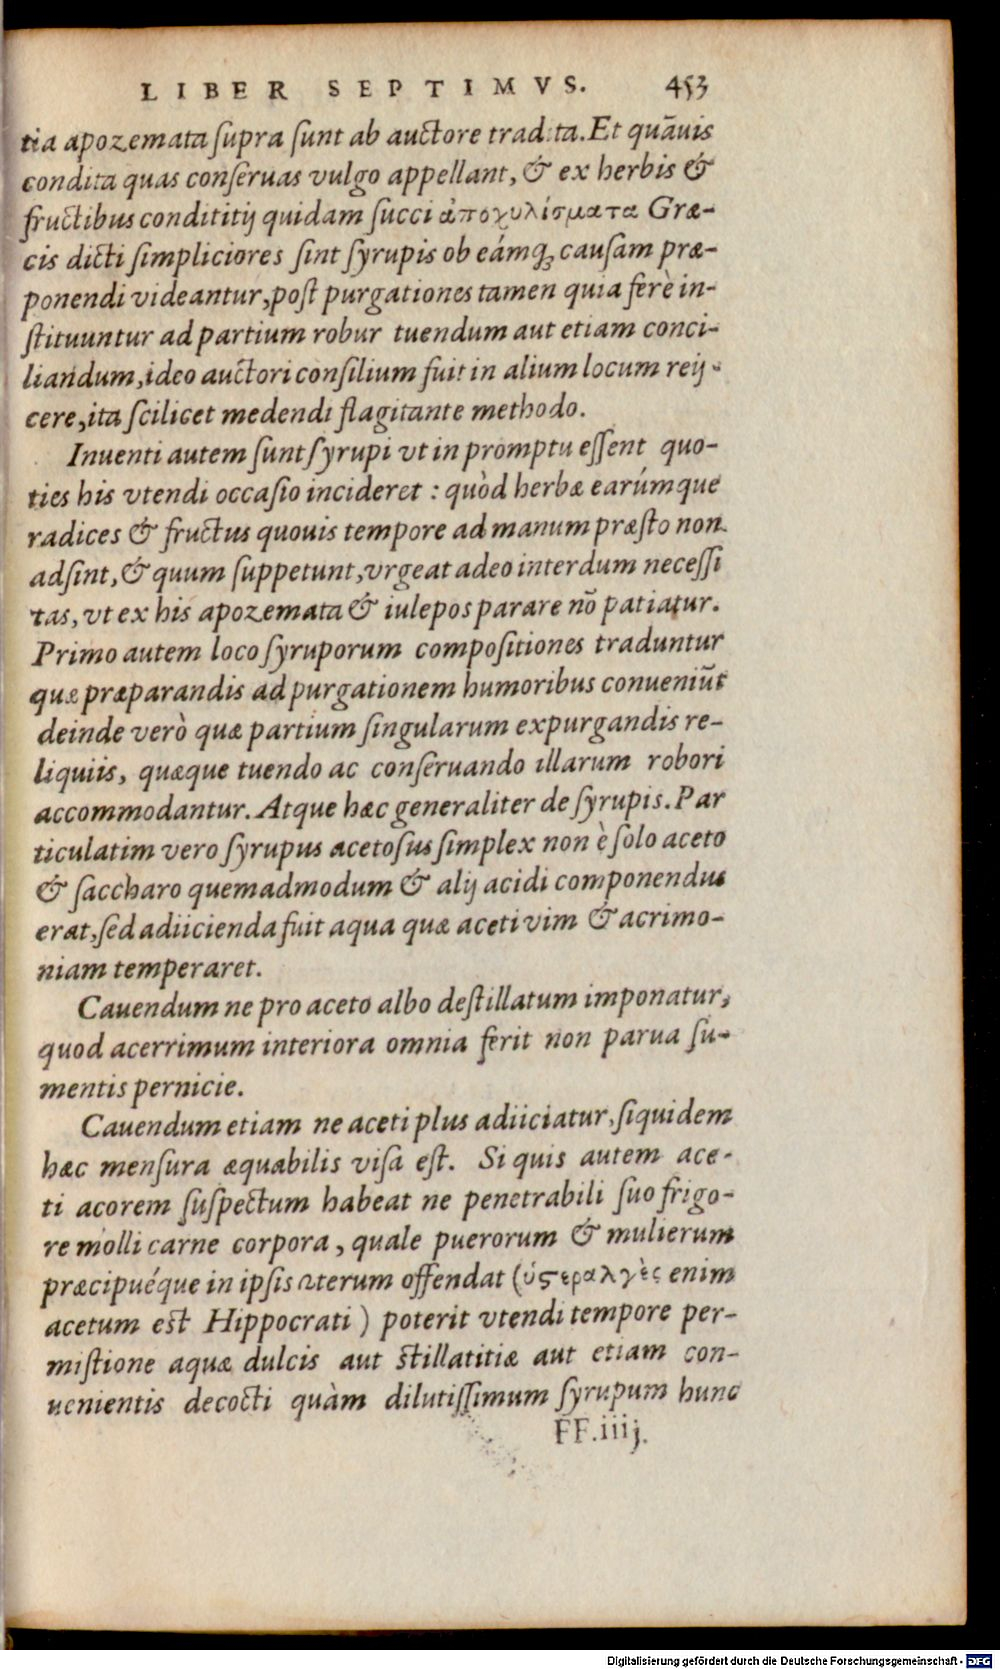 LIBER SEPTIMVS. 453
tia apozemata ſupra ſunt ab auctore tradita. Et quāuis
condita quas conſeruas vulgo appellant, & ex herbis &
fructibus condititij quidam ſucci ἀποχυλίσματα Græ-
cis dicti ſimpliciores ſint ſyrupis ob eámq; cauſam præ-
ponendi videantur, poſt purgationes tamen quia ferè in-
ſtituuntur ad partium robur tuendum aut etiam conci-
liandum, ideo auctori conſilium fuit in alium locum reij-
cere, ita ſcilicet medendi flagitante methodo.
Inuenti autem ſunt ſyrupi vt in promptu eſſent quo-
ties his vtendi occaſio incideret : quòd herbæ earúmque
radices & fructus quouis tempore ad manum præſto non
adſint, & quum ſuppetunt, vrgeat adeo interdum neceſſi
tas, vt ex his apozemata & iulepos parare nō patiatur.
Primo autem loco ſyruporum compoſitiones traduntur
quæ præparandis ad purgationem humoribus conueniūt
deinde verò quæ partium ſingularum expurgandis re-
liquiis, quæque tuendo ac conſeruando illarum robori
accommodantur. Atque hæc generaliter de ſyrupis. Par
ticulatim vero ſyrupus acetoſus ſimplex non è ſolo aceto
& ſaccharo quemadmodum & alij acidi componendus
erat, ſed adiicienda fuit aqua quæ aceti vim & acrimo-
niam temperaret.
Cauendum ne pro aceto albo deſtillatum imponatur,
quod acerrimum interiora omnia ferit non parua ſu-
mentis pernicie.
Cauendum etiam ne aceti plus adiiciatur, ſiquidem
hæc menſura æquabilis viſa eſt. Si quis autem ace-
ti acorem ſuſpectum habeat ne penetrabili ſuo frigo-
re molli carne corpora, quale puerorum & mulierum
præcipuéque in ipſis vterum offendat (ὑϛεραλγὲς enim
acetum eſt Hippocrati) poterit vtendi tempore per-
miſtione aquæ dulcis aut ſtillatitiæ aut etiam con-
uenientis decocti quàm dilutiſſimum ſyrupum hunc
FF.iiij.
Digitalisierung gefördert durch die Deutsche Forschungsgemeinschaft - DFG